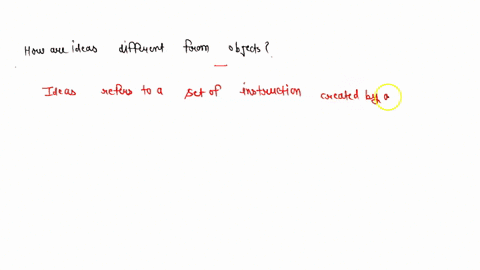 How are ideas different from objects?
Ideas refers to a set of instruction created by a